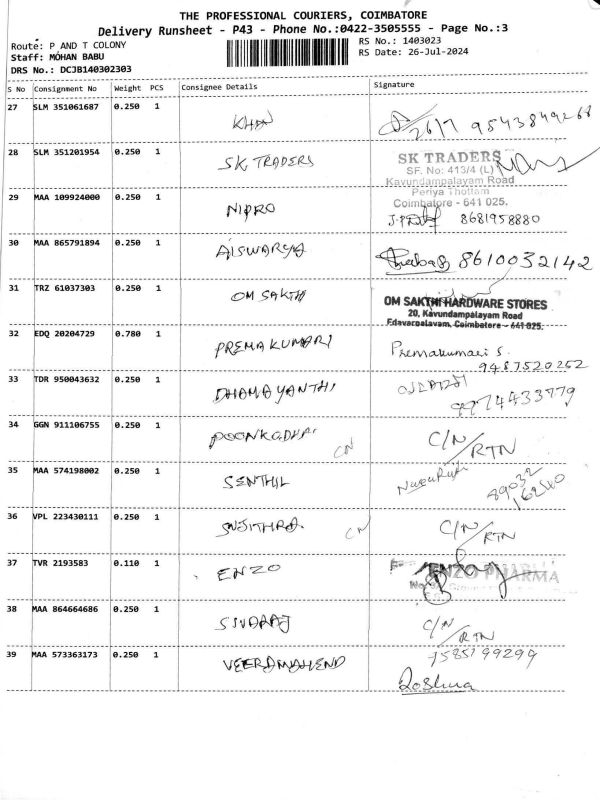 THE PROFESSIONAL COURIERS, COIMBATORE
Delivery Runsheet - P43 - Phone No.:0422-3505555 - Page No.:3
Route: P AND T COLONY
RS No.: 1403023
Staff: MOHAN BABU
RS Date: 26-Jul-2024
DRS No.: DCJB140302303
S No Consignment No Weight PCS Consignee Details Signature
27 SLM 351061687 0.250 1 KHAN 26/7 9543849268
28 SLM 351201954 0.250 1 SK TRADERS
SK TRADERS
SF. No: 413/4 (L)
Kavundampalayam Road
Periya Thottam
Coimbatore - 641 025.
29 MAA 109924000 0.250 1 NIPRO 8681958880
30 MAA 865791894 0.250 1 AISWARYA 8610032142
31 TRZ 61037303 0.250 1 OM SAKTHI
OM SAKTHI HARDWARE STORES
20, Kavundampalayam Road
Edayarpalayam, Coimbatore - 641 025.
32 EDQ 20204729 0.780 1 PREMAKUMARI Premakumari S.
9487520252
33 TDR 950043632 0.250 1 DHAMAYANTHI
34 GGN 911106755 0.250 1 CN C/N/RTN
35 MAA 574198002 0.250 1 SENTHIL 89032
162540
36 VPL 223430111 0.250 1 SUJITHRA CN C/N/RTN
37 TVR 2193583 0.110 1 ENZO ENZO PHARMA
38 MAA 864664686 0.250 1 SIVARAJ C/N/RTN
39 MAA 573363173 0.250 1 VEERAMAHEND 7585199299
Roshua